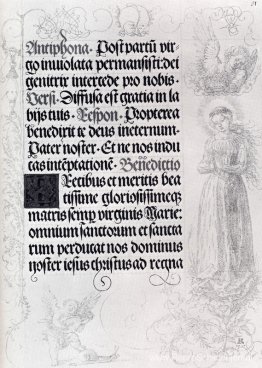 Antiphona. Post partū vir-
go inviolata permansisti: dei
genitrix intercede pro nobis.
Versi. Diffusa est gratia in la
bijs tuis. Respon. Propterea
benedixit te deus ineternum.
Pater noster. Et ne nos indu
cas intēptationē. Benedictio
Precibus et meritis bea
tissime gloriosissimeq
matris semp virginis Marie:
omnium sanctorum et sancta
rum perducat nos dominus
noster iesus christus ad regna